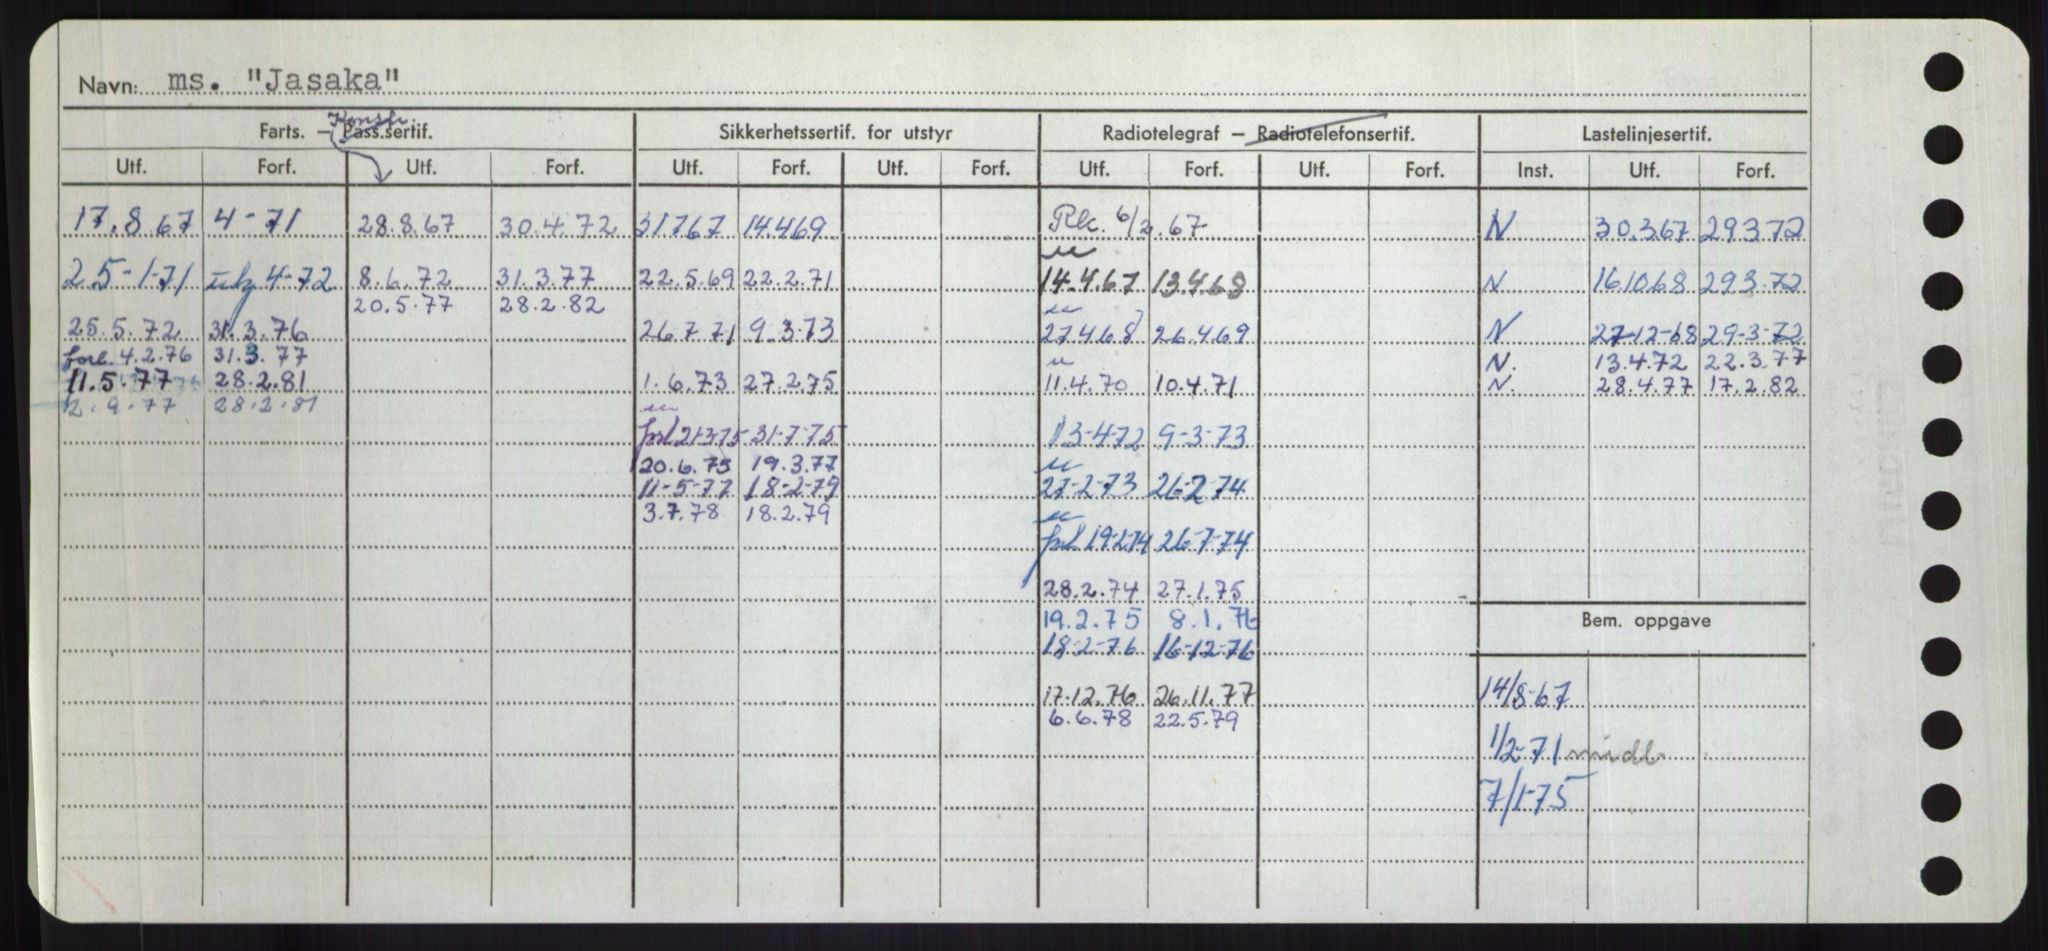 Navn: ms. "Jasaka"
Farts. – Pass.sertif. Konstr. Sikkerhetssertif. for utstyr Radiotelegraf – Radiotelefonsertif. Lastelinjesertif.
Utf. Forf. Utf. Forf. Utf. Forf. Utf. Forf. Utf. Forf. Utf. Forf. Inst. Utf. Forf.
17.8.67 4-71 28.8.67 30.4.72 31767 14469 Rk. 6/2.67 N 30.3.67 29372
25-1-71 4-72 8.6.72 31.3.77 22.5.69 22.2.71 14.4.67 13.4.68 N 16.10.68 293.72
20.5.77 28.2.82
25.5.72 31.3.76 26.7.71 9.3.73 27.4.68 26.4.69 N 27-12-68 29-3-72
forl. 4.2.76 31.3.77 N. 13.4.72 22.3.77
11.5.77 28.2.81 1.6.73 27.2.75 11.4.70 10.4.71 N. 28.4.77 17.2.82
2.9.77 28.2.81
forl 21-3-75 31-7-75 13-4-72 9-3-73
20.6.75 19.3.77
11-5-77 18-2-79 27-2-73 26-2-74
3.7.78 18.2.79
forl 19-2-74 26-7-74
28.2.74 27.1.75
19.2.75 8.1.76 Bem. oppgave
18-2-76 16-12-76
17.12.76 26.11.77 14/8-67
6.6.78 22.5.79
1/2-71 midl.
7/1-75